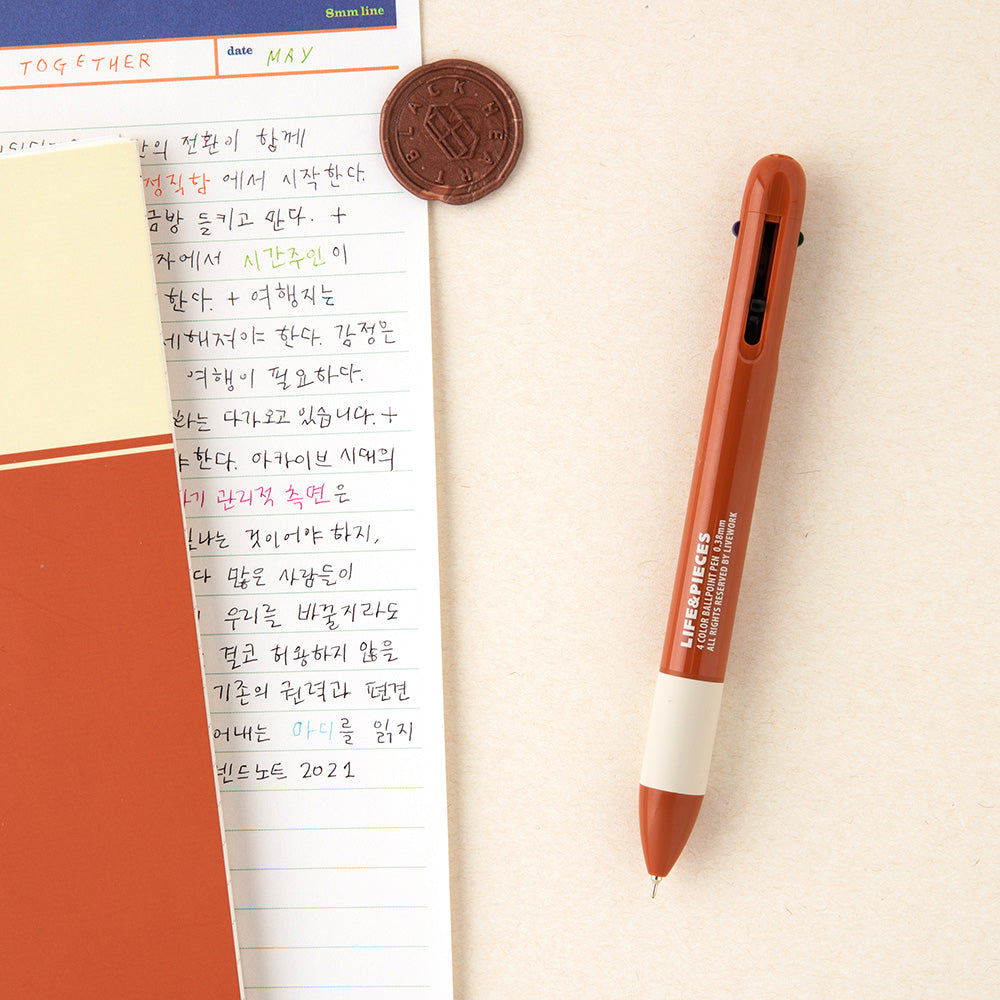 8mm line
TOGETHER
date MAY
전환이 함께
정직함에서 시작한다.
금방 들키고 만다. +
에서 시간주인이
한다. + 여행지는
해져야 한다. 감정은
여행이 필요하다.
하는 다가오고 있습니다. +
한다. 아카이브 시대의
관리적 측면은
것이어야 하지,
많은 사람들이
우리를 바꿀지라도
결코 허황하지 않을
기존의 권력과 편견
어내는 마디를 읽지
2021
BLACK HEART
LIFE&PIECES
4 COLOR BALLPOINT PEN 0.38mm
ALL RIGHTS RESERVED BY LIVEWORK